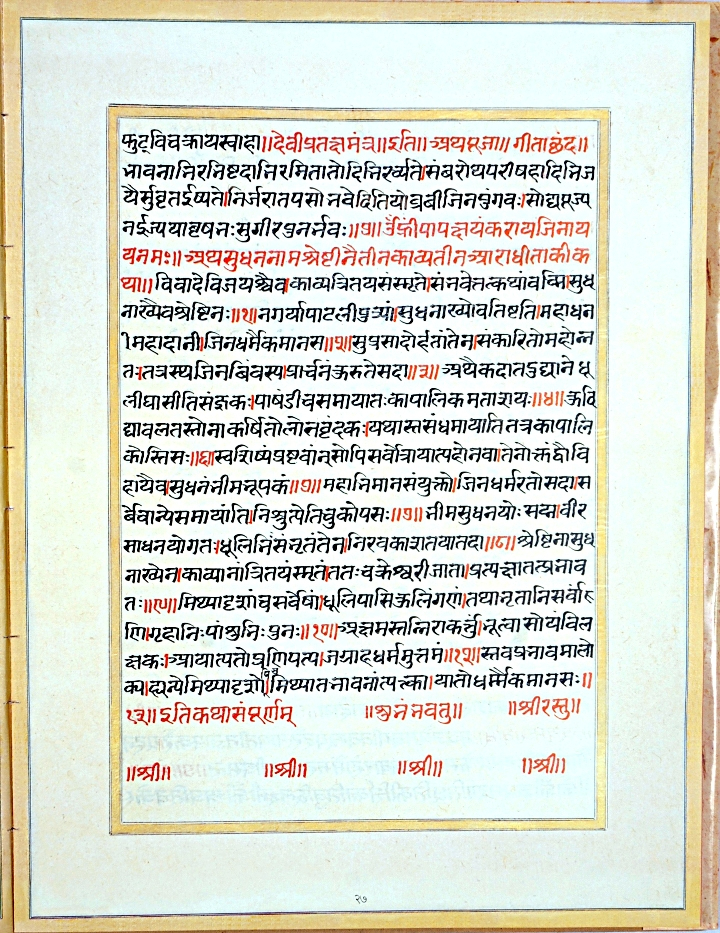 फुट्विचक्रायस्वाहा॥देवीप्रतज्ञमंत्र॥इति॥अथपूजा॥गीताछंद॥
भावनाभिरनिष्टदाभिरमितातोदिभिरर्च्यते।संवरोथपरीषहादिभिज
यैर्सुवृतईष्यते।निर्जरातपसो नवेदितियोब्रवीजिनपुंगवः।सोद्यपूज्य
नईज्ययावृषनःसुगीरपुनर्नवः॥७॥ॐह्रींपापक्षयंकरायजिनाय
यनमः॥अथसुधननामश्रेष्टीनैतीनकाव्यतीनआराधीताकीक
था॥विवादेविजयश्चैव।काव्यत्रितयसंस्मृते।संनवेतत्कथांवच्मि।सुध
नाख्यैवश्रेष्टिनः॥१॥नगर्यापाटलीपुत्र्यां।सुधनाख्योवतिष्टति।महाधन
ीमहादानी।जिनधर्मैकमानस॥२॥सुप्रसादोर्हतांतेन।संकारितोमहोन्न
तः।तत्रस्यजिनबिंबस्य।प्रार्चनंकुरुतेसदा॥३॥अथैकदातदुद्याने धू
लीपासीतिसंज्ञकः।पाषंडीचसमायातःकापालिकमताशयः॥४॥कुवि
द्याबलतस्तेनाकर्षितोलोकवृंदकः।यथास्तसंधमायाति तत्रकापालि
कोस्तिसः॥६॥स्वशिष्यंपृष्टवान्सोपिसर्वेत्रायात्यहोनवा।तेनोक्तंद्वौवि
हायैव।सुधनंनीमनूपकं॥७॥महानिमानसंयुक्तो।जिनधर्मरतोसदा।स
र्वेवान्येसमायांति।निश्रुत्येतिचुकोपसः॥७॥नीमसुधनयोः सद्म।वीर
साधनयोगतः।धूलिनिःसंनृतंतेन।निरवकाशतायातदा॥८॥श्रेष्टिनासुध
नाख्येन।काव्यानांत्रितयंस्मृतं।ततःचक्रेश्वरीजाता।प्रत्यक्षातत्प्रनाव
तः॥९॥मिथ्यादृशांचसर्वेषां।धूलिपासिकुलिंगराां।तथानृतानिसर्वाह
णि।गृहानिःपांशुनिः पुनः॥१०॥अक्षमस्तन्निराकर्तुं।नूत्वासोयंविल
क्षकः।आयात्यतोप्रणिपत्य।जग्राहधर्ममुत्तमं॥११॥स्तवप्रनावमालो
क्य।दृान्येमिथ्यादृशो।मिथ्यातनावनांत्यक्त्वा।यातोधर्मैकमानसः॥
१२॥इतिकथासंपूर्णम् ॥शुनंनवतु॥ ॥श्रीरस्तु॥
॥श्री॥ ॥श्री॥ ॥श्री॥ ॥श्री॥
२७